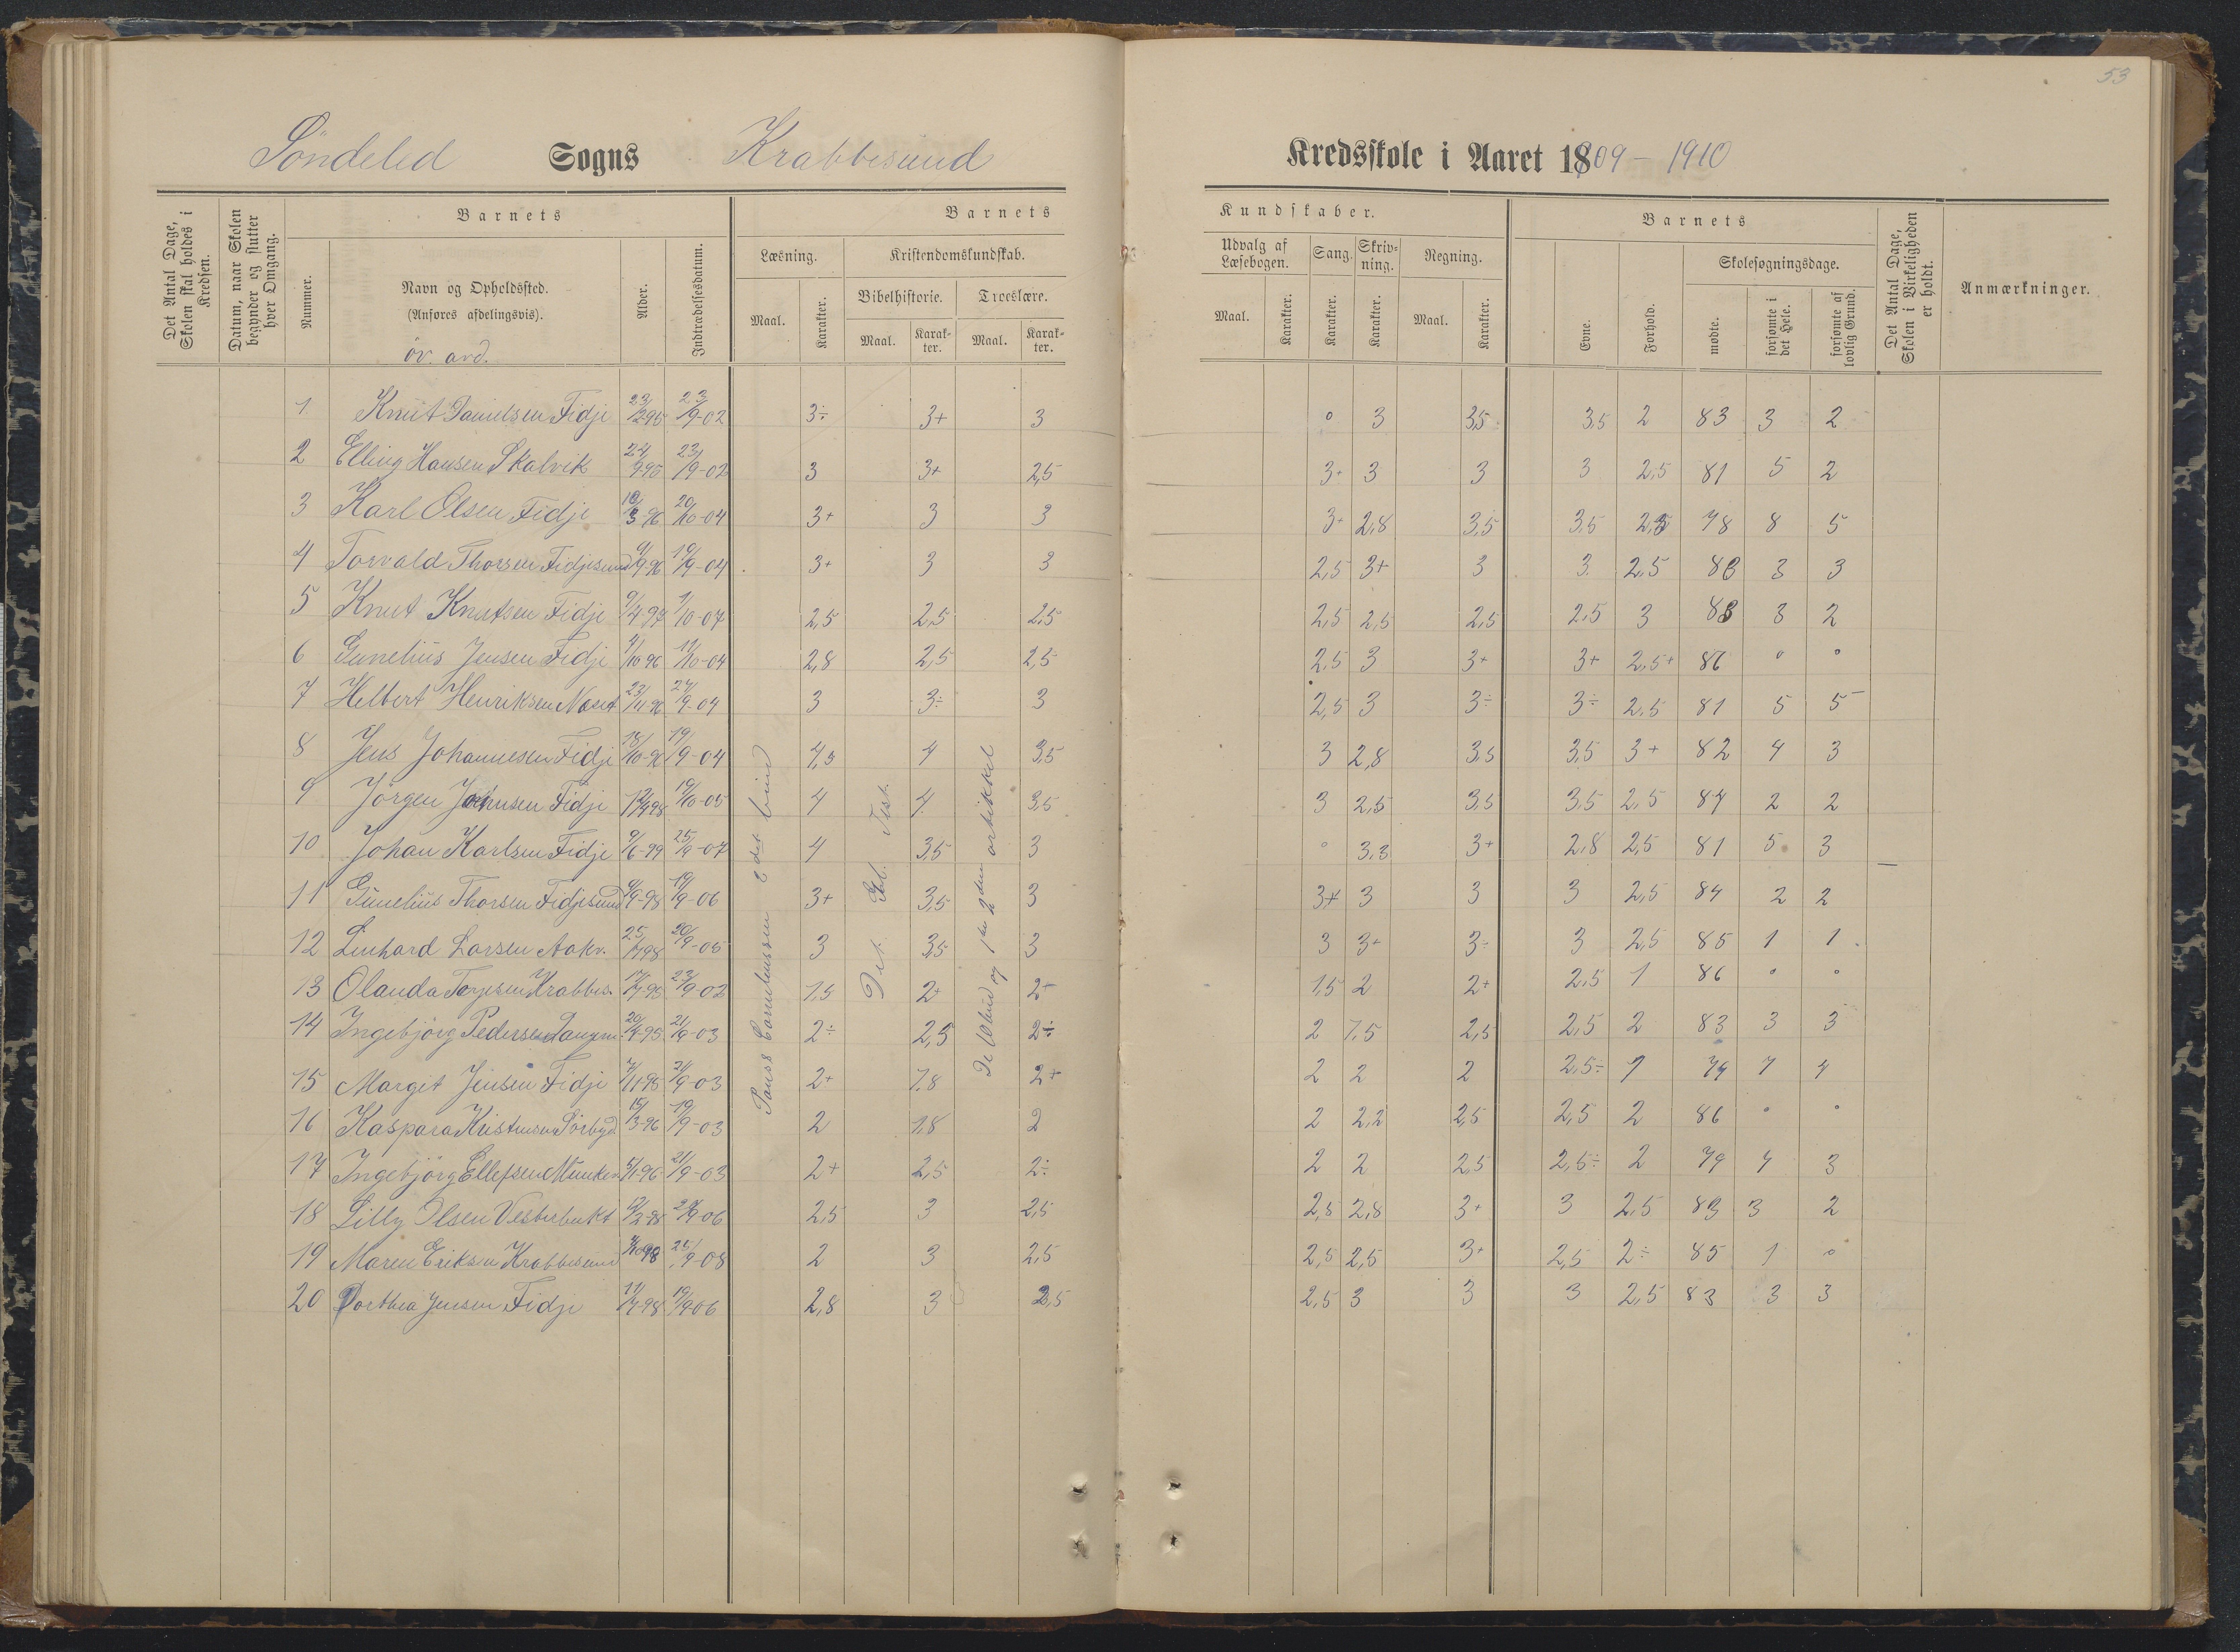 53
Söndeled Sogns Krabbesund Kredsskole i Aaret 1909 - 1910
Det Antal Dage, Skolen skal holdes i Kredsen.
Datum, naar Skolen begynder og slutter hver Omgang.
Barnets
Nummer.
Navn og Opholdssted.
(Anføres afdelingsvis).
öv. avd.
Alder.
Indtrædelsesdatum.
Barnets Kundskaber.
Læsning.
Maal.
Karakter.
Kristendomskundskab.
Bibelhistorie.
Maal.
Karakter.
Troeslære.
Maal.
Karakter.
Udvalg af Læsebogen.
Maal.
Karakter.
Sang.
Karakter.
Skrivning.
Karakter.
Regning.
Maal.
Karakter.
Barnets
Evne.
Forhold.
Skolesøgningsdage.
mødte.
forsømte i det Hele.
forsømte af lovlig Grund.
Det Antal Dage, Skolen i Virkeligheden er holdt.
Anmærkninger.
1 Knut Danielsen Fidje 23/2 95 23/9-02 3÷ 3+ 3 0 3 3,5 3,5 2 83 3 2
2 Elling Hansen Skalvik 24/9 95 23/9-02 3 3+ 2,5 3+ 3 3 3 2,5 81 5 2
3 Karl Olsen Fidje 18/3-96 20/10-04 3+ 3 3 3+ 2,8 3,5 3,5 2,5 78 8 5
4 Torvald Thorsen Fidjesund 9-96 19/9-04 3+ 3 3 2,5 3+ 3 3 2,5 83 3 3
5 Knut Knutsen Fidje 9/4 97 1/10-07 2,5 2,5 2,5 2,5 2,5 2,5 2,5 3 83 3 2
6 Gunelius Jensen Fidje 7/10 96 11/10-04 2,8 2,5 2,5 2,5 3 3+ 3+ 2,5+ 86 0 0
7 Helbert Henriksen Næset 23/11-96 27/9-04 3 3÷ 3 2,5 3 3÷ 3÷ 2,5 81 5 5
8 Jens Johannesen Fidje 18/10-96 19/9-04 4,5 4 3,5 3 2,8 3,5 3,5 3+ 82 4 3
9 Jörgen Johnsen Fidje 98 19/10-05 4 4 3,5 3 2,5 3,5 3,5 2,5 84 2 2
10 Johan Karlsen Fidje 9/6-99 25/9-07 4 3,5 3 0 3,3 3+ 2,8 2,5 81 5 3
11 Gunelius Thorsen Fidjesund 9-98 19/9-06 3+ 3,5 3 3+ 3 3 3 2,5 84 2 2
12 Linhard Larsen Aakv. 25/7 98 20/9-05 3 3,5 3 3 3+ 3÷ 3 2,5 85 1 1
13 Olanda Terjesen Krabbes. 17/4-95 23/9-02 1,5 2+ 2+ 1,5 2 2+ 2,5 1 86 0 0
14 Ingebjörg Pedersen 20/4-95 21/9-03 2÷ 2,5 2÷ 2 1,5 2,5 2,5 2 83 3 3
15 Margit Jensen Fidje 7/11-95 21/9-03 2+ 1,8 2+ 2 2 2 2,5÷ 1 79 7 4
16 Kaspara Kristensen Sörbyd 15/3-96 19/9-03 2 1,8 2 2 2,2 2,5 2,5 2 86 0 0
17 Ingebjörg Ellefsen Munken 5/1-96 21/9-03 2+ 2,5 2÷ 2 2 2,5 2,5÷ 2 79 7 3
18 Lilly Olsen Vesterbukt 12/2-98 9-06 2,5 3 2,5 2,5 2,8 3+ 3 2,5 83 3 2
19 Maren Eriksen Krabbesund 7/10 98 25/9-08 2 3 2,5 2,5 2,5 3+ 2,5 2÷ 85 1 0
20 Dorthea Jensen Fidje 11/7-98 19/9 06 2,8 3 2,5 2,5 3 3 3 2,5 83 3 3
Pauss Cornelinssen 2 det bind
Det Gl. Test.
De 10 bud og 1ste 2den artikkel